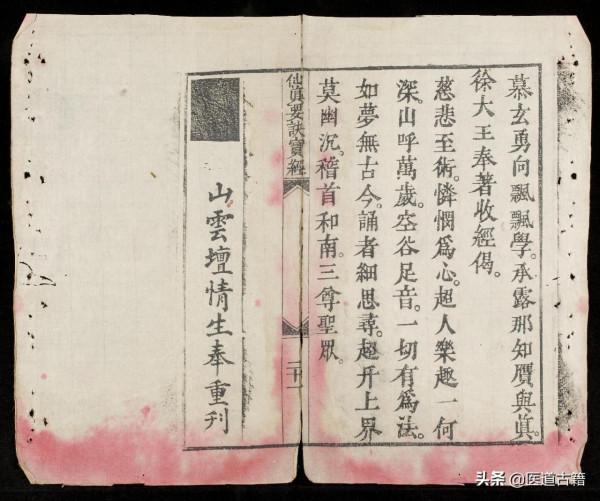 慕玄勇向飄飄學。承露那知贋與眞。
徐大王奉著收經偈。
慈悲至術。憐憫爲心。超人樂趣一何
深。山呼萬歲。空谷足音。一切有爲法。
如夢無古今。誦者細思尋。超升上界
莫幽沉。稽首和南三尊聖眾。
仙眞要訣寶經
二十一
山雲壇情生奉重刊
头条 @医道古籍